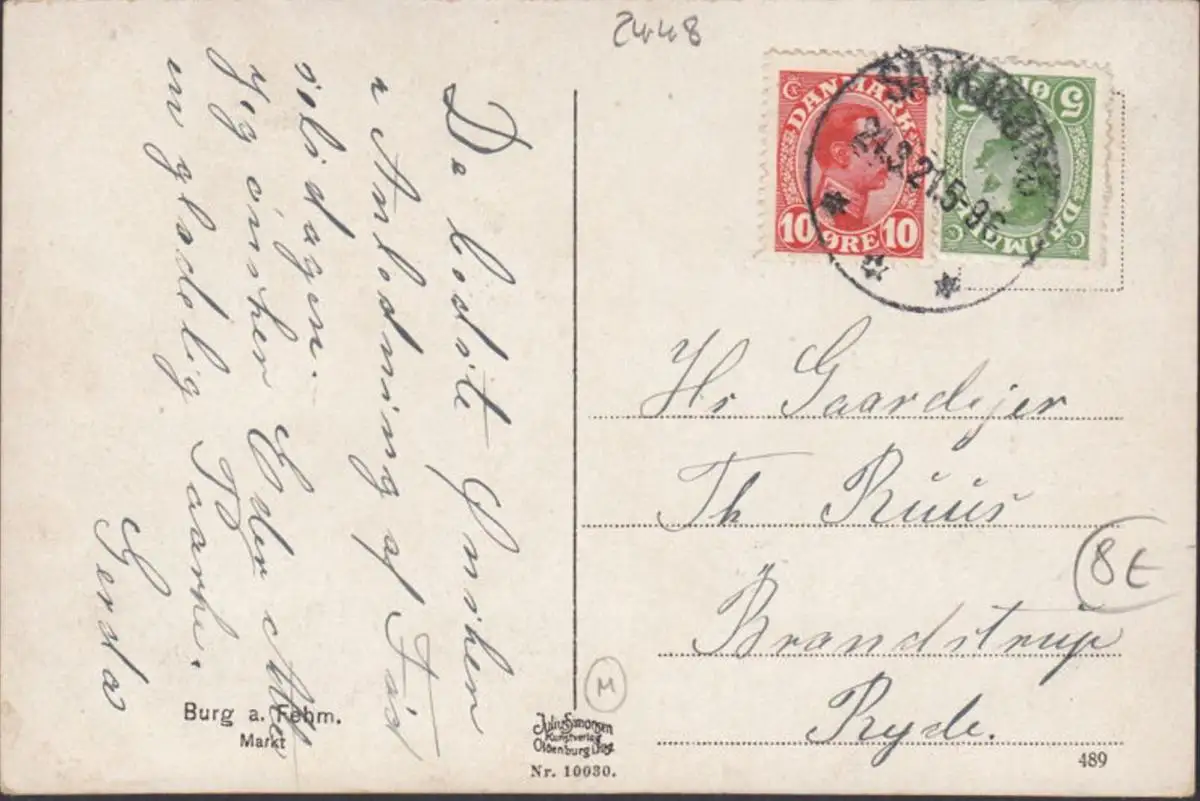 2448
De bedste Ønsken
i Anledning af Føds
selsdagen.
Jeg ønsker Eder Alle
en glædelig Paaske.
Gerda
Burg a. Fehm.
Markt
Julius Simonsen
Kunstverlag
Oldenburg i. Hols.
Nr. 10030.
DANMARK
10 ØRE 10
5 ØRE 5
DANMARK
SAKSKØBING
24.3.21.5-9E
Hr Gaardejer
Th Ruus
Brandstrup
Ryde.
8E
M
489